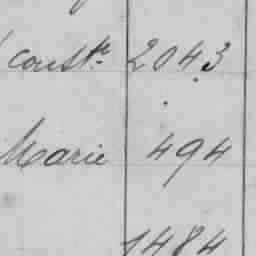 constr 2043
Marie 494
1484